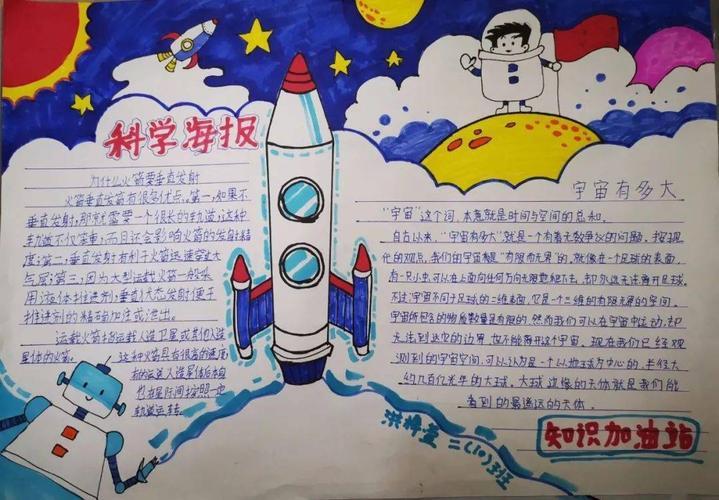 科学海报
为什么火箭要垂直发射
火箭垂直发射有很多优点。第一,如果不
垂直发射,那就需要一个很长的轨道,这种
轨道不仅笨重,而且还会影响火箭的发射精
度;第二,垂直发射有利于火箭迅速穿过大
气层;第三,因为大型运载火箭一般采
用液体推进剂,垂直状态发射便于
推进剂的精确加注或泄出。
运载火箭指运载人造卫星或其他人造
星体的火箭。这种火箭具有很高的速度,
轨道运转
宇宙有多大
“宇宙”这个词,本意就是时间与空间的总和。
自古以来,“宇宙有多大”就是一个有着无数争议的问题。按现
代的观点,我们的宇宙是“有限无界”的,就像在一个足球的表面,
有一只小虫可以在上面向任何方向无限爬行下去,却永远无法离开足球。
不过宇宙不同于足球的二维表面,它是一个三维的有限无界的空间。
宇宙所包含的物质数量是有限的,然而我们可以在宇宙中运动,却
无法到达它的边界,也不能离开这个宇宙。现在我们已经观
测到的宇宙空间,可以认为是一个以地球为中心的,半径大
约几百亿光年的大球。大球边缘的天体就是我们能
看到的最遥远的天体。
知识加油站
二(10)班